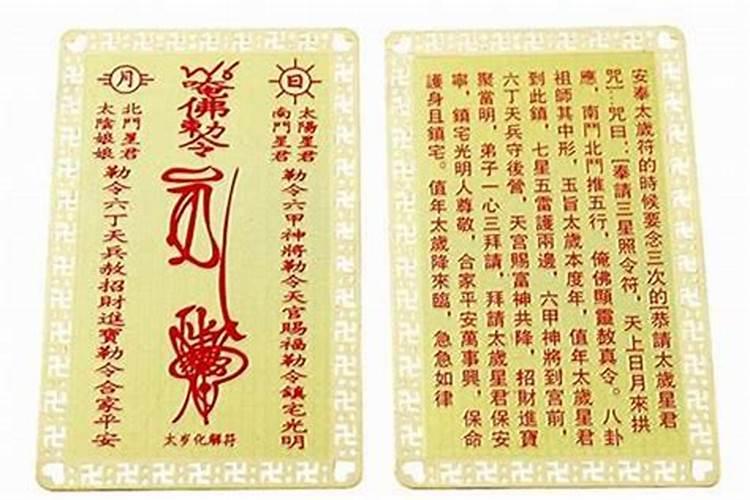 日
太陽星君
南鬥星君
勒令六甲神將勒令天官賜福勒令鎮宅光明
唵佛勅令
太岁化解符
月
北鬥星君
太陰娘娘
勒令六丁天兵赦招財進寶勒令合家平安
安奉太歲符的時候要念三次的[恭請太歲星君
咒]:咒曰:[奉請三星照令符,天上日月來拱
應,南鬥北鬥推五行,俺佛顯靈敖真令。八卦
祖師其中形,玉旨太歲本度年,值年太歲星君
到此鎮,七星五雷護兩邊,六甲神將到宮前,
六丁天兵守後營,天宮賜富神共降,招財進寶
聚當明,弟子一心三拜請,拜請太歲星君保安
寧,鎮宅光明人尊敬,合家平安萬事興,保命
護身且鎮宅。值年太歲降來臨,急急如律